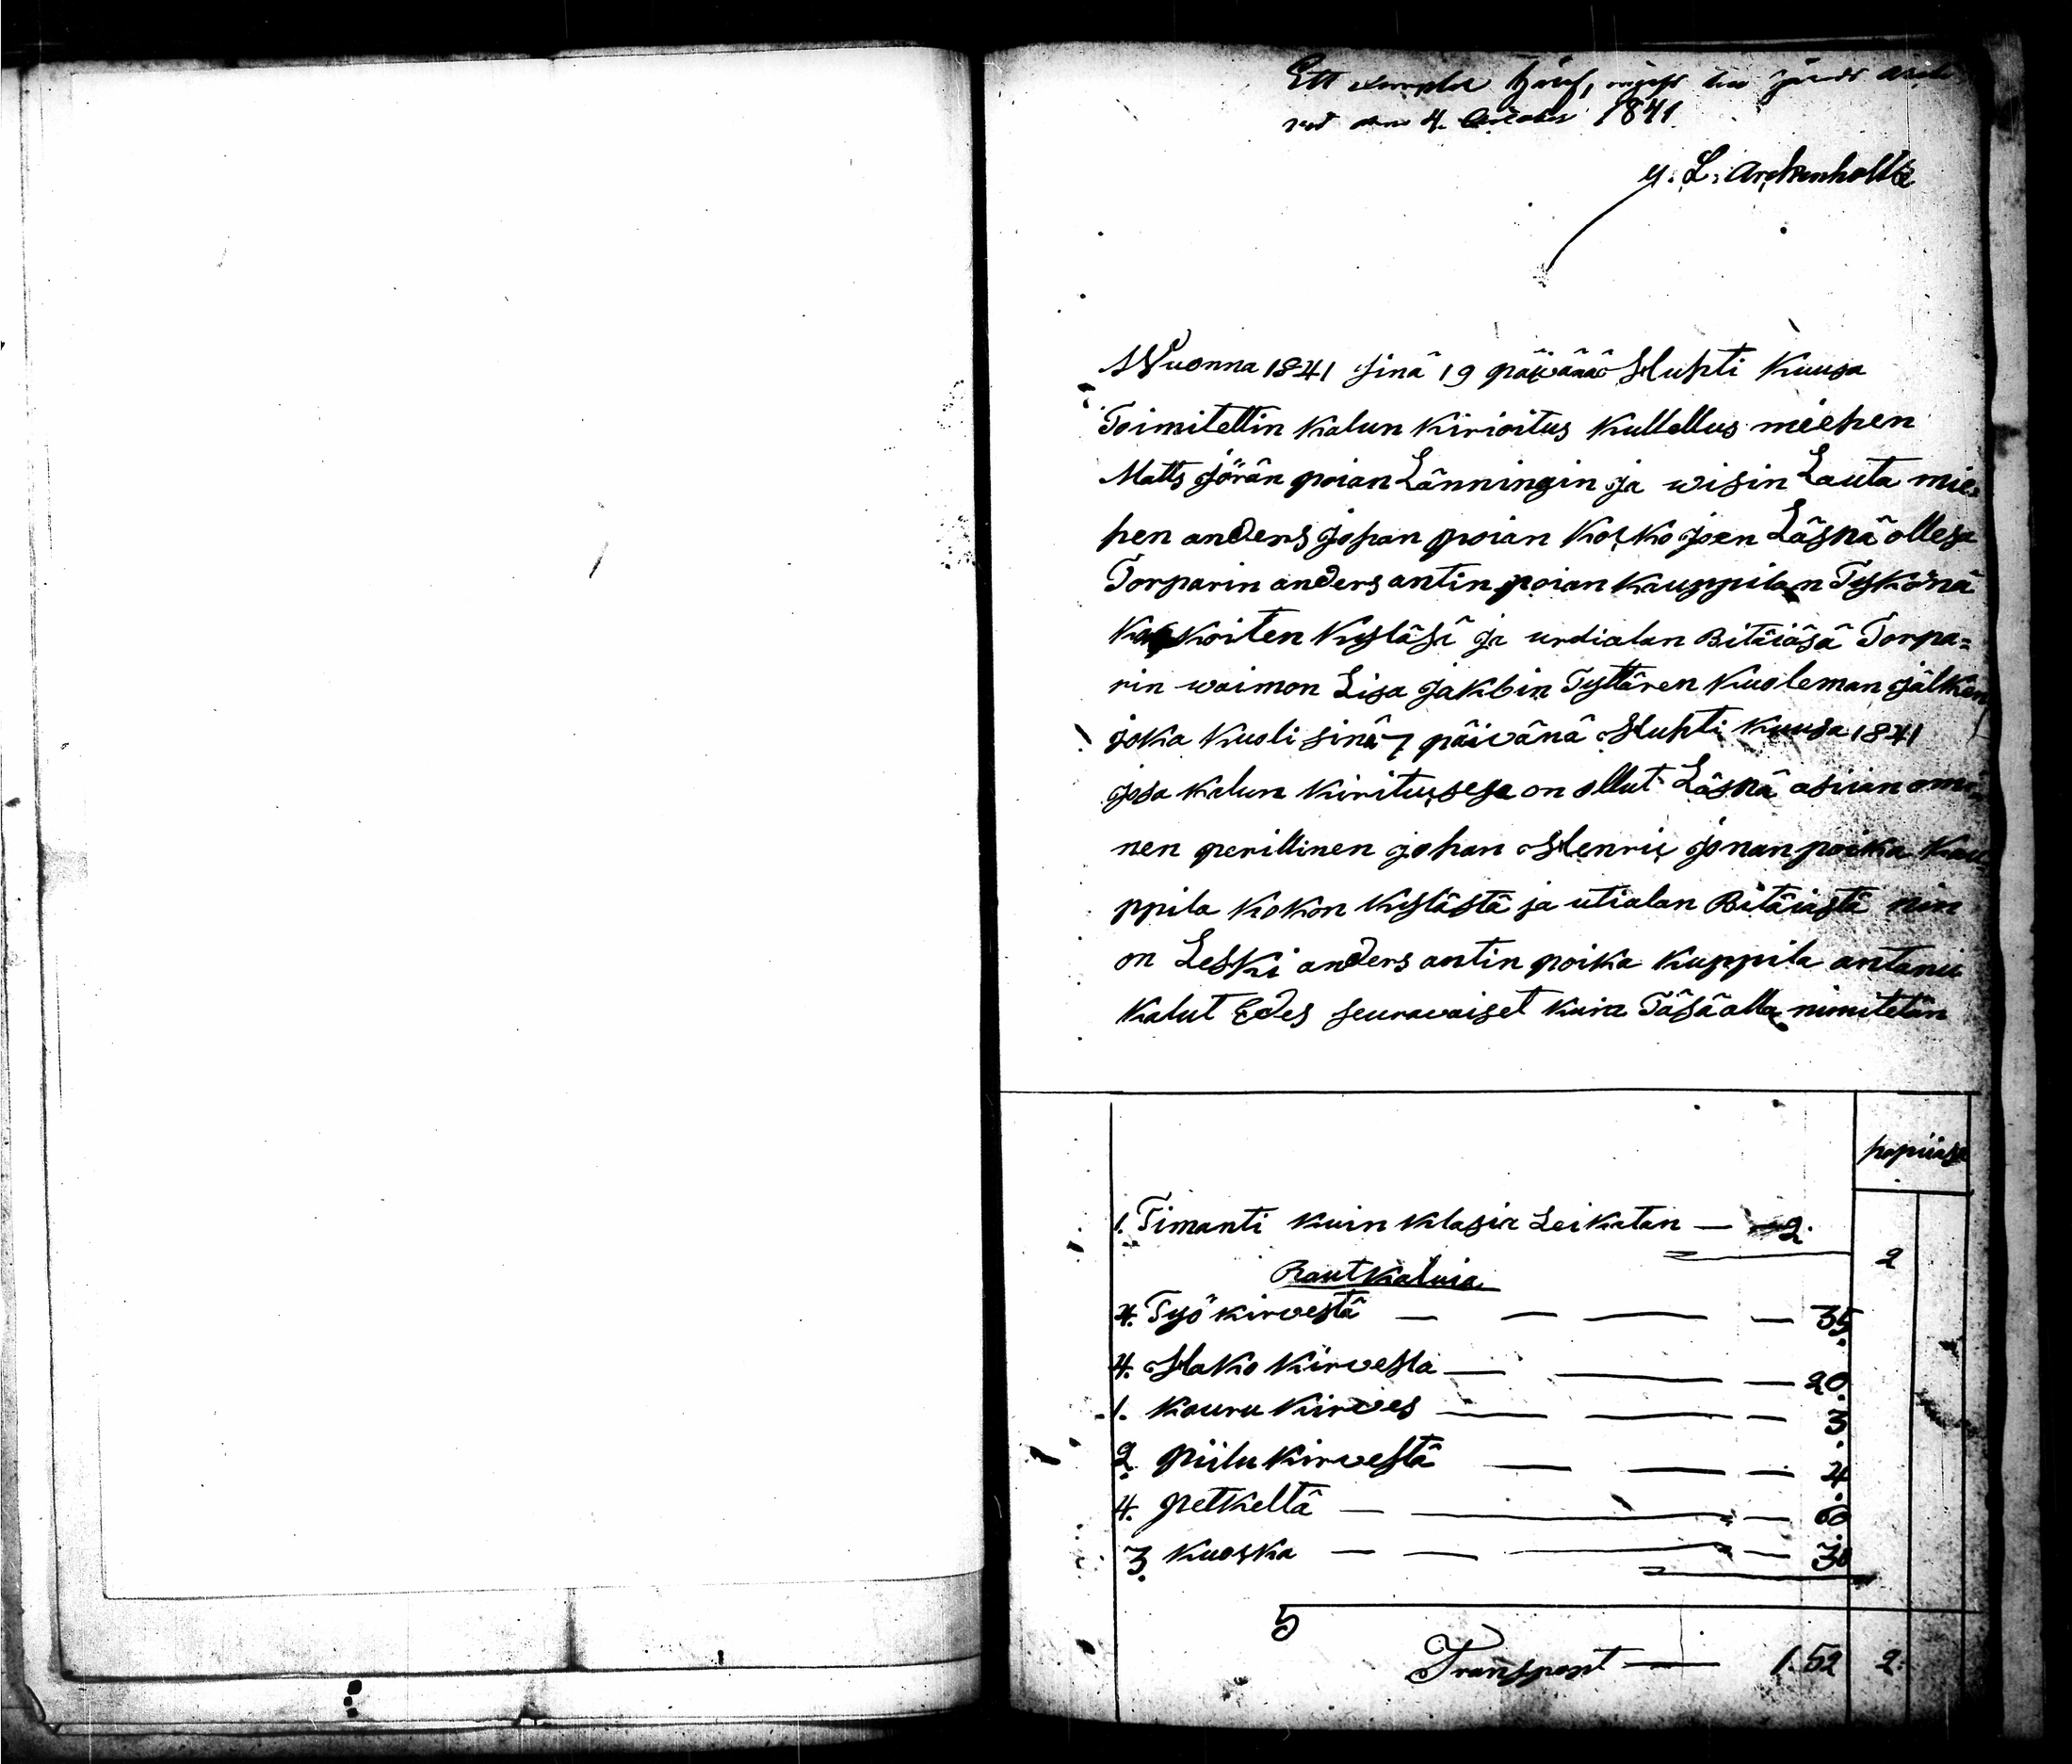 Ett
den 4. October 1841.
G. L. Arckenholtz
Wuonna 1841 sinä 19 päiwänä Huhti Kuusa
Toimitettin Kalun Kirioitus Kullellus miehen
Matts Jörän poian Länningin ja wisin Lauta mie-
hen anders Johan poian Koskojoen Läsnä ollesa
Torparin anders antin poian Kauppilan Tykönä
Koskoiten Kyläsä ja urdialan Bitäiäsä Torpa=
rin waimon Lisa Jakbin Tyttären Kuoleman jälken
joka Kuoli sinä 7 päiwänä Huhti Kuusa 1841
josa Kalun Kiritusesa on ollut Läsnä asiian omi-
nen perillinen Johan Henric Jonan poika Kau-
ppila Kokon Kylästä ja utialan Bitäiästä nin
on Leski anders antin poika Kuppila antanu
Kalut Edes seurawaiset Kuin Täsä alla nimitetän
hopiiasa
1. Timanti Kuin Klasia Leikatan — 2.
2
Rautkaluia
4. Työ kirvestä — 35
4. Hako Kirvesta — 20.
1. Kouru Kirves — 3.
2. Piilu Kirvestä — 4.
4. Petkeltä — 60
3. Kuoska — 30
5
Transport — 1.52 2.